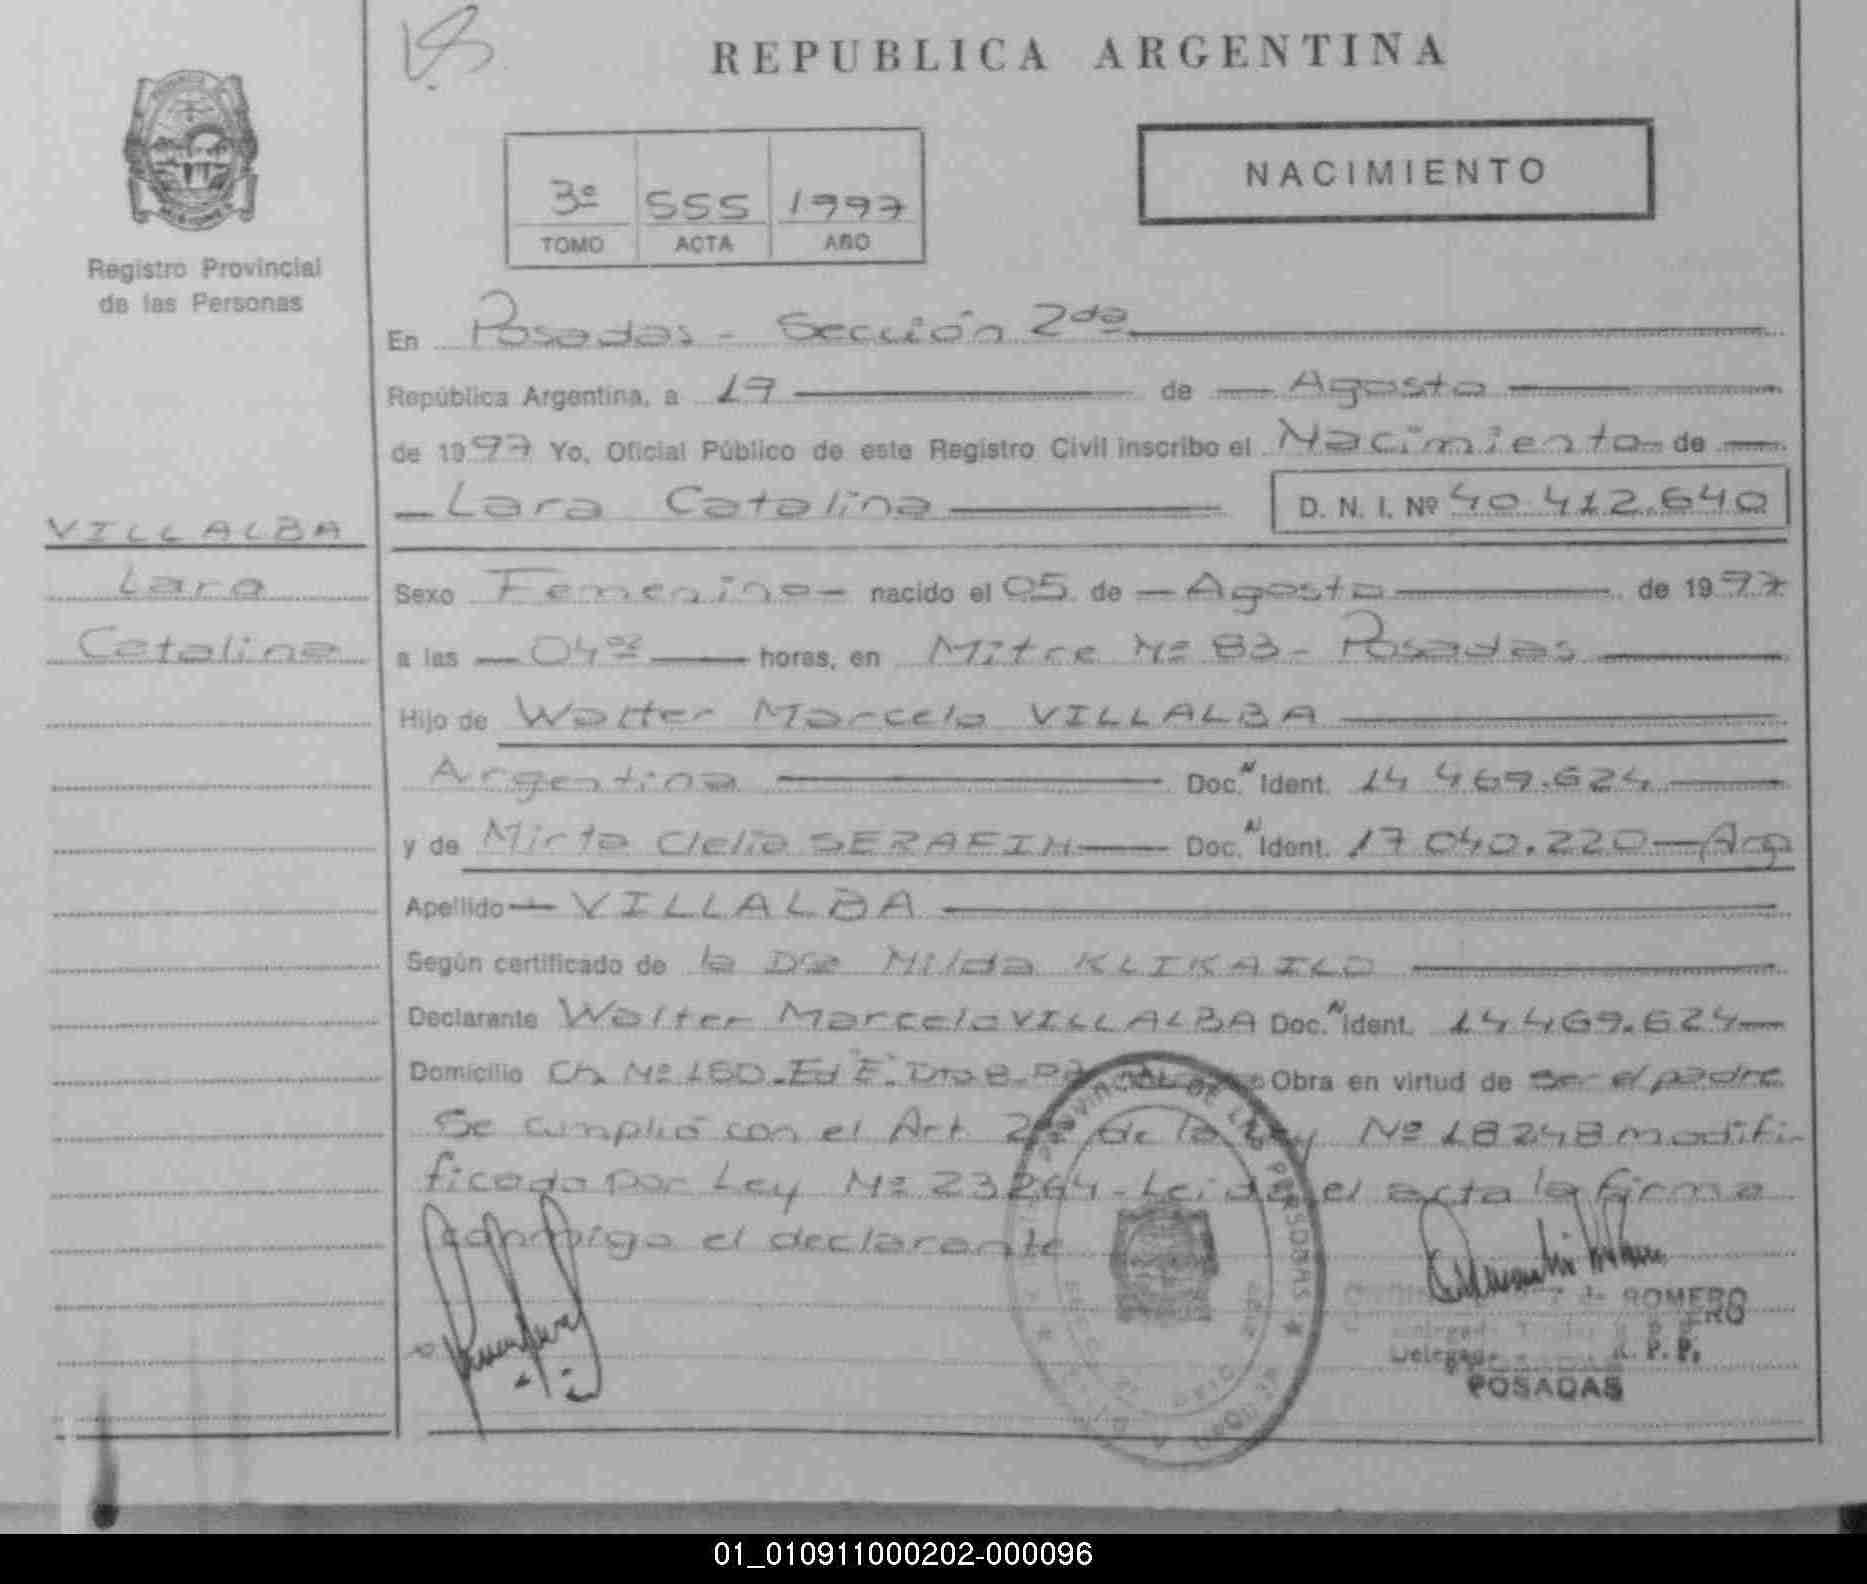 REPUBLICA ARGENTINA
NACIMIENTO
3º 555 1997
TOMO ACTA AÑO
Registro Provincial
de las Personas
En Posadas - Sección 2da
República Argentina, a 19 de Agosto
de 1997 Yo, Oficial Público de este Registro Civil inscribo el Nacimiento de
Lara Catalina D. N. I. Nº 40.412.640
VILLALBA
Lara
Catalina
Sexo Femenino nacido el 05 de Agosto de 1997
a las 04 horas, en Mitre Nº 83 - Posadas
Hijo de Walter Marcelo VILLALBA
Argentina Doc. Ident. 14 469.624
y de Mirta Clelia SERAFIN Doc. Ident. 17 040.220 - Arg
Apellido VILLALBA
Según certificado de la Dra Milda KLIKAILO
Declarante Walter Marcelo VILLALBA Doc. Ident. 14 469.624
Domicilio Ch. Nº 150. Ed "E". Dto 8. Obra en virtud de ser el padre
Se cumplió con el Art. de la Ley Nº 18248 modifi-
ficado por Ley Nº 23264 - Leida el acta la firma
conmigo el declarante
PROVINCIAL DE LAS PERSONAS
de ROMERO
Delegada R. P. P.
POSADAS
01_010911000202-000096